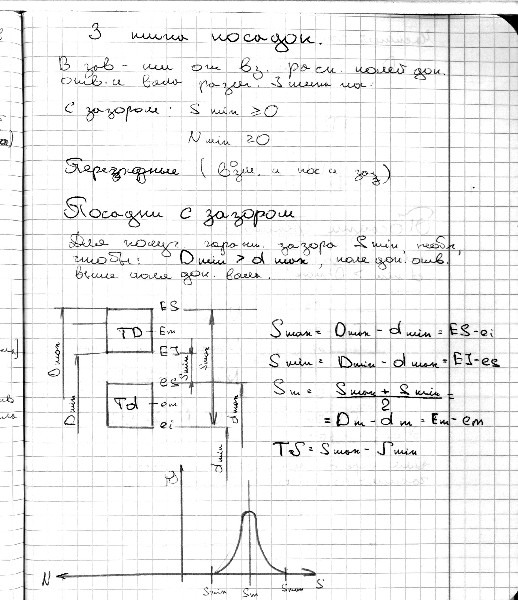 3 типа посадок.
В зав-ти от вз. расп. полей доп.
отв. и вала разл. 3 типа па.
С зазором: S min ≥0
N min ≥0
Переходные ( возм. и нос и заз)
Посадки с зазором
Для получ гарант. зазора S min, необх,
чтобы: D min > d max, поле доп. отв.
выше поля доп. вала.
ES
TD Em
EI
es
Td em
ei
D max
D min
S min
S max
d max
d min
S max = D max - d min = ES-ei
S min = D min - d max = EI-es
S m = S max + S min =
2
= D m - d m = Em - em
TS = S max - S min
N
S min
S m
S max
S